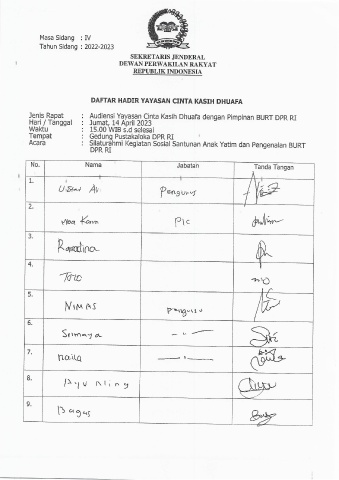 Masa Sidang : IV
Tahun Sidang : 2022-2023
SEKRETARIS JENDERAL
DEWAN PERWAKILAN RAKYAT
REPUBLIK INDONESIA
DAFTAR HADIR YAYASAN CINTA KASIH DHUAFA
Jenis Rapat : Audiensi Yayasan Cinta Kasih Dhuafa dengan Pimpinan BURT DPR RI
Hari / Tanggal : Jumat, 14 April 2023
Waktu : 15.00 WIB s.d selesai
Tempat : Gedung Pustakaloka DPR RI
Acara : Silaturahmi Kegiatan Sosial Santunan Anak Yatim dan Pengenalan BURT
DPR RI
No. Nama Jabatan Tanda Tangan
1. Pengurus
2. PIC
3.
4.
5. NIMAS Pengurus
6. Semaya
7. Naila
8. Ayu Ning
9. Bagas